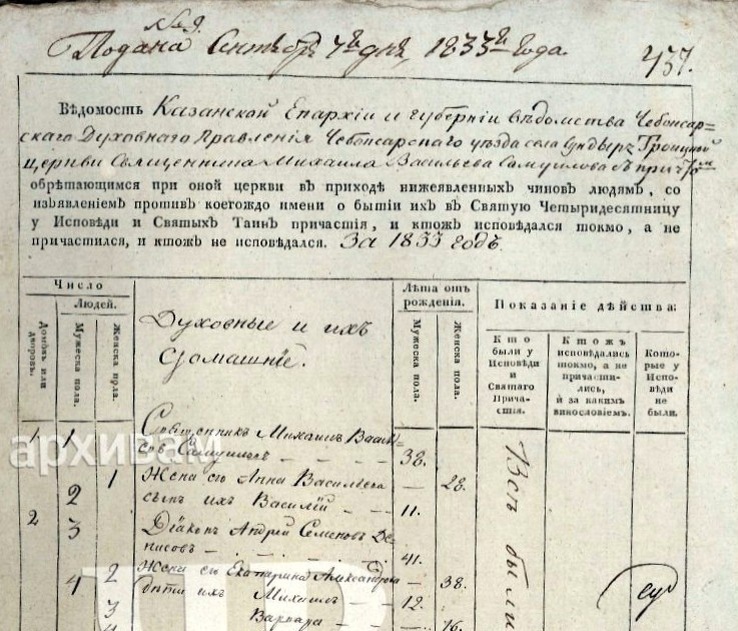 № 9.
Подана Сентября 7го дня, 1833го года. 437.
Вѣдомость Казанской Епархіи и губерніи вѣдомства Чебоксар=
скаго Духовнаго Правленія Чебоксарскаго уѣзда села Сундырь Троицкой
церкви Священника Михаила Васильева Самуилова съ причтомъ
обрѣтающимся при оной церкви въ приходѣ нижеявленныхъ чиновъ людямъ, со
изъявленіемъ противъ коегождо имени о бытіи ихъ въ Святую Четыридесятницу
у Исповѣди и Святыхъ Таинъ причастія, и ктожъ исповѣдался токмо, а не
причастился, и ктожъ не исповѣдался. За 1833 годъ.
Число
Людей.
Домовъ или дворовъ.
Мужеска пола.
Женска пола.
Духовные и ихъ
домашніе.
Лѣта отъ
рожденія.
Мужеска пола.
Женска пола.
Показаніе дѣйства:
Кто
были у
Исповѣди
и
Святаго
Прича-
стія.
Ктожъ
исповѣдались
токмо, а не
причасти-
лись,
й за какимъ
винословіемъ.
Кото-
рые у
Испо-
вѣди
не
были.
1 1 Священникъ Михаилъ Василь=
евъ Самуиловъ — — 38.
1 Жена его Анна Васильева — 28.
2 сынъ ихъ Василій — — 11.
2 3 Діаконъ Андрей Семеновъ Де=
нисовъ — — — — — 41.
2 Жена его Екатерина Александрова — 38.
4 дѣти ихъ Михаилъ — 12.
3 Варвара — — 16.
Всѣ были
архивам